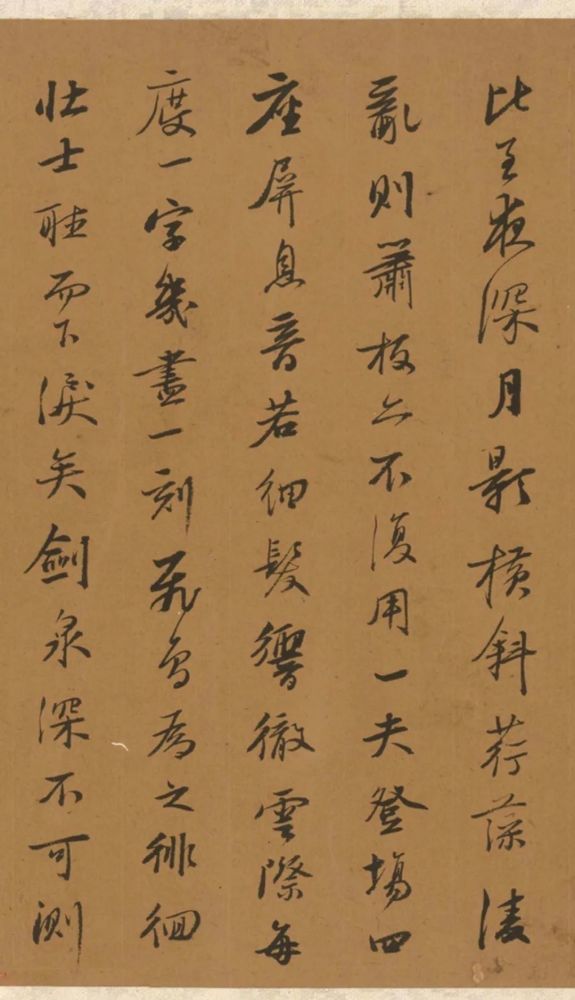 比至夜深月影橫斜荇藻淩
亂則蕭板亦不復用一夫登場四
座屏息音若細髮響徹雲際每
度一字幾盡一刻飛鳥為之徘徊
壯士聽而下淚矣劍泉深不可測